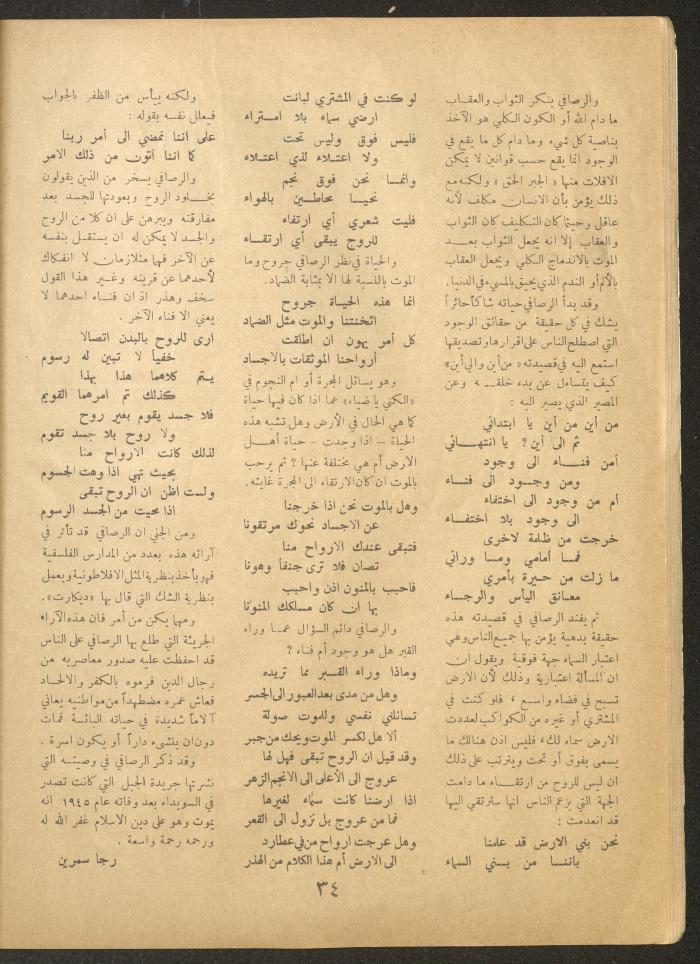 والرصافي ينكر الثواب والعقاب
ما دام الله أو الكون الكلي هو الآخذ
بناصية كل شيء وما دام كل ما يقع في
الوجود انما يقع حسب قوانين لا يمكن
الافلات منها « الجبر الحق » ولكنه مع
ذلك يؤمن بأن الانسان مكلف لأنه
عاقل وحيثما كان التكليف كان الثواب
والعقاب إلا انه يجعل الثواب بعد
الموت بالاندماج الكلي ويجعل العقاب
بالألم أو الندم الذي يحيق بالمسيء في الدنيا .
وقد بدأ الرصافي حياته شاكاً حائراً
يشك في كل حقيقة من حقائق الوجود
التي اصطلح الناس على اقرارها وتصديقها
استمع اليه في قصيدته « من أين والى أين »
كيف يتساءل عن بدء خلقه وعن
المصير الذي يصير اليه :
من أين من أين يا ابتدائي
ثم الى أين ؟ يا انتهائي
أمن فناء الى وجود
ومن وجود الى فناء
أم من وجود الى اختفاء
الى وجود بلا اختفاء
خرجت من ظلمة لاخرى
فما أمامي وما ورائي
ما زلت من حيرة بأمري
معانق اليأس والرجاء
ثم يفند الرصافي في قصيدته هذه
حقيقة بدهية يؤمن بها جميع الناس وهي
اعتبار السماء جهة فوقية ويقول ان
ان المسألة اعتبارية وذلك لأن الارض
تسبح في فضاء واسع ، فلو كنت في
المشتري أو غيره من الكواكب لعددت
الارض سماء لك ، فليس اذن هنالك ما
يسمى بفوق أو تحت ويترتب على ذلك
ان ليس للروح من ارتقاء ما دامت
الجهة التي يزعم الناس انها سترتقي اليها
قد انعدمت :
نحن بني الارض قد علمنا
باننا من بني السماء
لو كنت في المشتري لبانت
ارضي سماء بلا امتراء
فليس فوق وليس تحت
ولا اعتلاء لذي اعتلاء
وانما نحن فوق نجم
نحيا محاطين بالهواء
فليت شعري أي ارتفاء
للروج يبقى أي ارتقاء
والحياة في نظر الرصافي جروح وما
الموت بالنسبة لها الا بمثابة الضماد .
انما هذه الحياة جروح
اثخنتنا والموت مثل الضماد
كل أمر يهون ان اطلقت
أرواحنا الموثقات بالاجساد
وهو يسائل المجرة أو ام النجوم في
« الكنى يا ضياء » عما اذا كان فيها حياة
كما هي الحال في الأرض وهل تشبه هذه
الحياة – اذا وجدت – حياة أهل
الأرض أم هي مختلفة عنها ؟ ثم يرحب
بالموت ان كان الارتقاء الى المجرة غايته .
وهل بالموت نحن اذا خرجنا
عن الاجساد نحوك مرتقونا
فتبقى عندك الارواح منا
تصان فلا ترى جنفاً وهونا
فاحبب بالمنون اذن واحبب
بها ان كان مسلكك المنونا
والرصافي دائم السؤال عما وراء
القبر هل هو وجود أم فناء ؟
وماذا وراء القبر مما تريده
وهل من مدى بعد العبور الى الجسر
تسائلني نفسي وللموت صولة
ألا هل لكسر الموت ويحك من جبر
وقد قيل ان الروح تبقى فهل لها
عروج الى الأعلى الى الانجم الزهر
اذا ارضنا كانت سماء لغيرها
فما من عروج بل نزول الى القعر
وهل عرجت ارواح من في عطارد
الى الارض أم هذا الكلام من الهذر
ولكنه ييأس من الظفر بالجواب
فيعلل نفسه بقوله :
على اننا نمضي الى أمر ربنا
كما اننا آتون من ذلك الامر
والرصافي يسخر من الذين يقولون
بخلود الروح وبعودتها للجسد بعد
مفارقته ويبرهن على ان كلا من الروح
والجسد لا يمكن له ان يستقل بنفسه
عن الآخر فهما متلازمان لا انفكاك
لأحدهما عن قرينه وغير هذا القول
سخف وهذر اذ ان فناء احدهما لا
يعني الا فناء الآخر .
ارى للروح بالبدن اتصالا
خفياً لا تبين له رسوم
يتم كلاهما هذا بهذا
كذلك تم امرهما القويم
فلا جسد يقوم بغير روح
ولا روح بلا جسد تقوم
لذلك كانت الارواح منا
بحيث تهي اذا وهت الجسوم
ولست اظن ان الروح تبقى
اذا محيت من الجسد الرسوم
ومن الجلي ان الرصافي قد تأثر في
آرائه هذه بعدد من المدارس الفلسفية
فهو يأخذ بنظرية المثل الافلاطونية ويعمل
بنظرية الشك التي قال بها « ديكارت » .
ومهما يكن من أمر فان هذه الآراء
الجريئة التي طلع بها الرصافي على الناس
قد احفظت عليه صدور معاصريه من
رجال الدين فرموه بالكفر والالحاد
فعاش عمره مضطهداً من مواطنيه يعاني
آلاماً شديدة في حياته البائسة فمات
دون ان ينشىء داراً أو يكون اسرة .
وقد ذكر الرصافي في وصيته التي
نشرتها جريدة الجبل التي كانت تصدر
في السويداء بعد وفاته عام ١٩٤٥ انه
يموت وهو على دين الاسلام غفر الله له
ورحمه رحمة واسعة .
رجا سمرين
٣٤